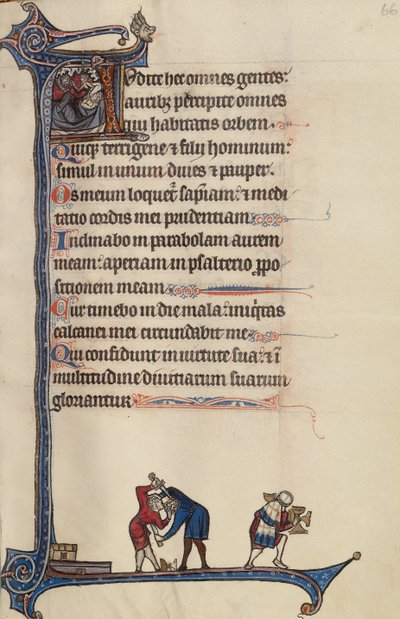 66
Audite hec omnes gentes:
auribꝫ percipite omnes
qui habitatis orbem.
Quiqꝫ terrigene ⁊ filij hominum:
simul in unum diues ⁊ pauper.
Os meum loquetᷣ sapiam: ⁊ medi
tatio cordis mei prudentiam
Inclinabo in parabolam aurem
meam: aperiam in psalterio ꝓpo
sitionem meam
Cur timebo in die mala: iniqͥtas
calcanei mei circundabit me
Qui confidunt in uirtute sua: ⁊ ī
multitudine diuitiarum suarum
gloriantur